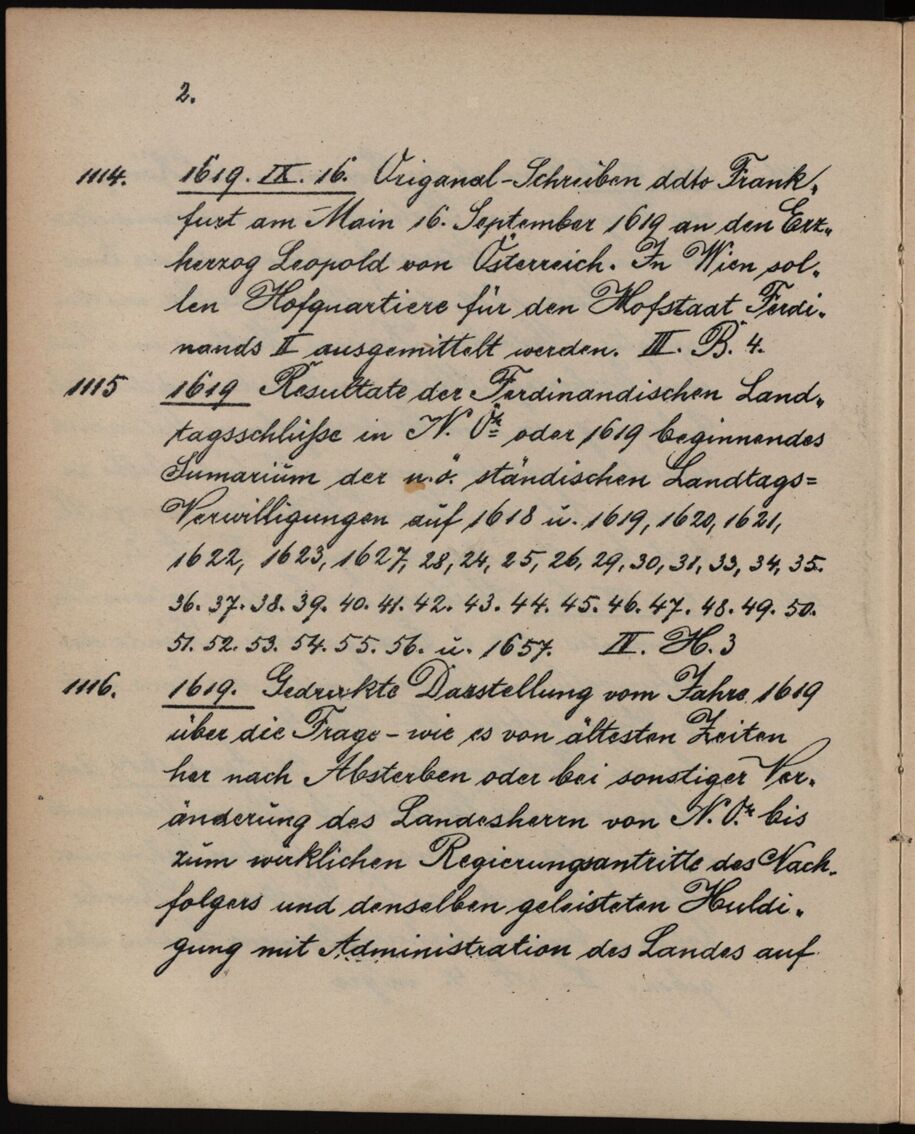 2.
1114. 1619. IX. 16. Origanal-Schreiben ddto Frank„
furt am Main 16. September 1619 an den Erz„
herzog Leopold von Österreich. In Wien sol„
len Hofquartiere für den Hofstaat Ferdi„
nands II ausgemittelt werden. III. B. 4.
1115 1619 Resultate der Ferdinandischen Land„
tagsschlüße in N. Ör oder 1619 beginnendes
Sumarium der n.ö. ständischen Landtags=
Verwilligungen auf 1618 u. 1619, 1620, 1621,
1622, 1623, 1627, 28, 24, 25, 26, 29, 30, 31, 33, 34, 35.
36. 37. 38. 39. 40. 41. 42. 43. 44. 45. 46. 47. 48. 49. 50.
51. 52. 53. 54. 55. 56. u. 1657. IV. H. 3
1116. 1619. Gedruckte Darstellung vom Jahre 1619
über die Frage - wie es von ältesten Zeiten
her nach Absterben oder bei sonstiger Ver„
änderung des Landesherrn von N. Ör bis
zum wirklichen Regierungsantritte des Nach„
folgers und denselben geleisteten Huldi„
gung mit Administration des Landes auf